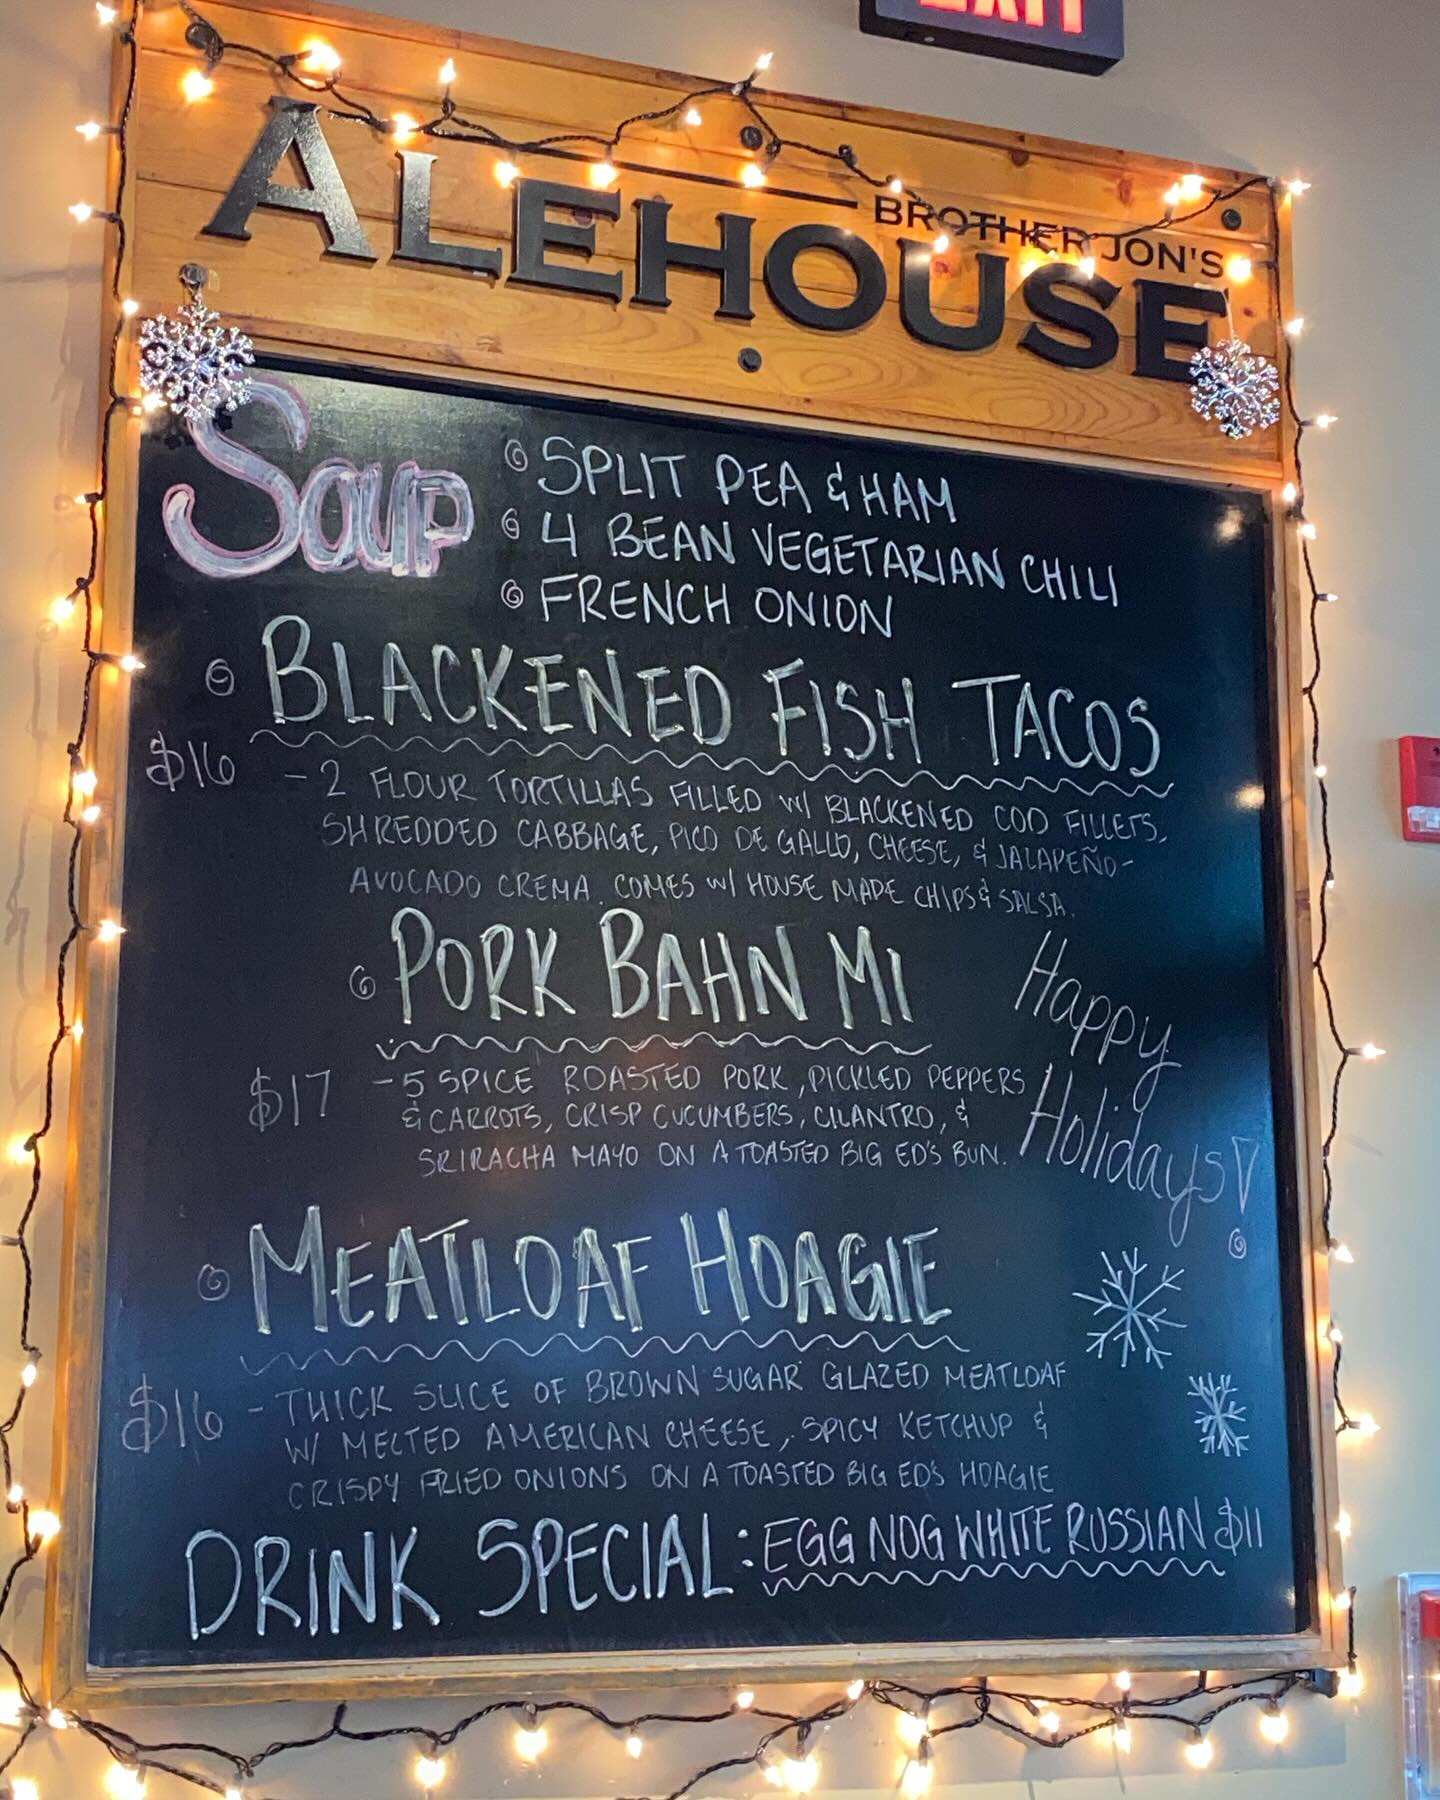 EXIT
BROTHER JON'S
ALEHOUSE
SOUP
SPLIT PEA & HAM
4 BEAN VEGETARIAN CHILI
FRENCH ONION
BLACKENED FISH TACOS
$16 - 2 FLOUR TORTILLAS FILLED W/ BLACKENED COD FILLETS,
SHREDDED CABBAGE, PICO DE GALLO, CHEESE, & JALAPEÑO-
AVOCADO CREMA. COMES W/ HOUSE MADE CHIPS & SALSA.
PORK BAHN MI
$17 - 5 SPICE ROASTED PORK, PICKLED PEPPERS
& CARROTS, CRISP CUCUMBERS, CILANTRO, &
SRIRACHA MAYO ON A TOASTED BIG ED'S BUN.
Happy
Holidays!
MEATLOAF HOAGIE
$16 - THICK SLICE OF BROWN SUGAR GLAZED MEATLOAF
W/ MELTED AMERICAN CHEESE, SPICY KETCHUP &
CRISPY FRIED ONIONS ON A TOASTED BIG ED'S HOAGIE
DRINK SPECIAL: EGG NOG WHITE RUSSIAN $11